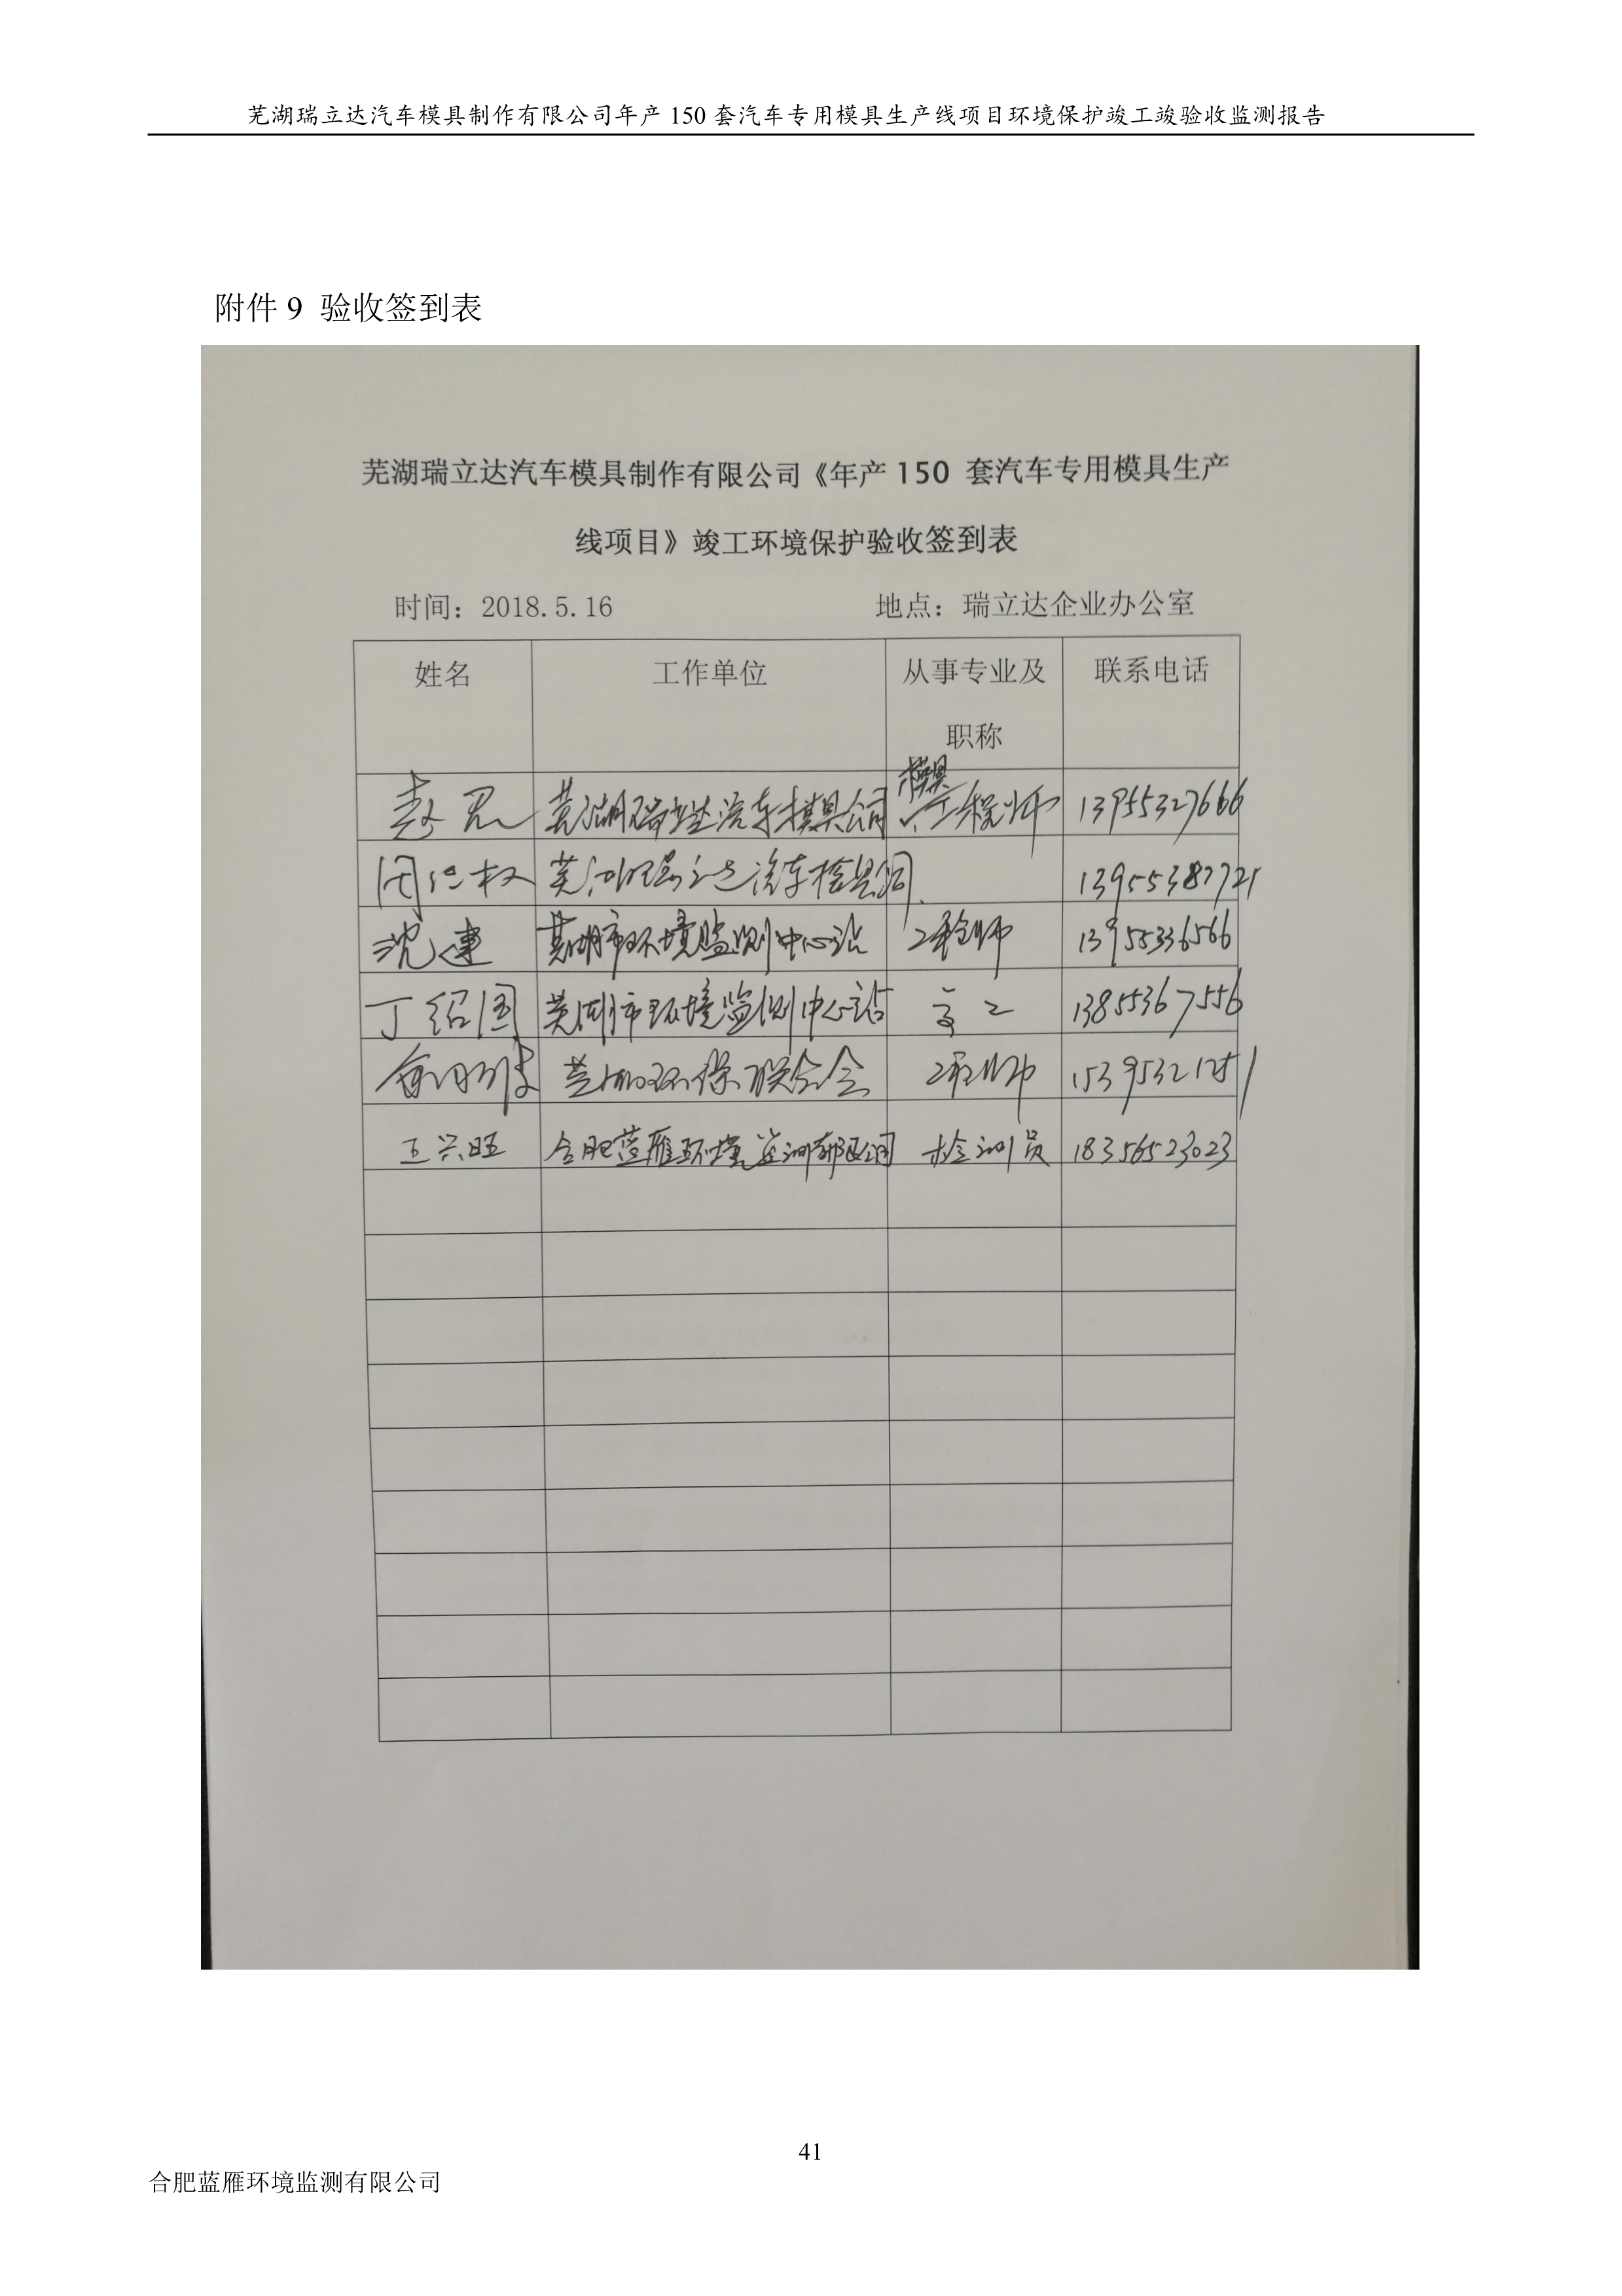 芜湖瑞立达汽车模具制作有限公司年产 150 套汽车专用模具生产线项目环境保护竣工竣验收监测报告
附件 9 验收签到表
芜湖瑞立达汽车模具制作有限公司《年产 150 套汽车专用模具生产
线项目》竣工环境保护验收签到表
时间：2018.5.16 地点：瑞立达企业办公室
姓名 工作单位 从事专业及 联系电话
职称
模具
芜湖瑞立达汽车模具公司 工程师 13955327666
芜湖瑞立达汽车模具公司 13955387721
沈建 芜湖市环境监测中心站 工程师 13955336566
丁绍图 芜湖市环境监测中心站 高工 13855367556
芜湖环保联合会 工程师
王兴旺 合肥蓝雁环境监测有限公司 检测员 18356523023
41
合肥蓝雁环境监测有限公司